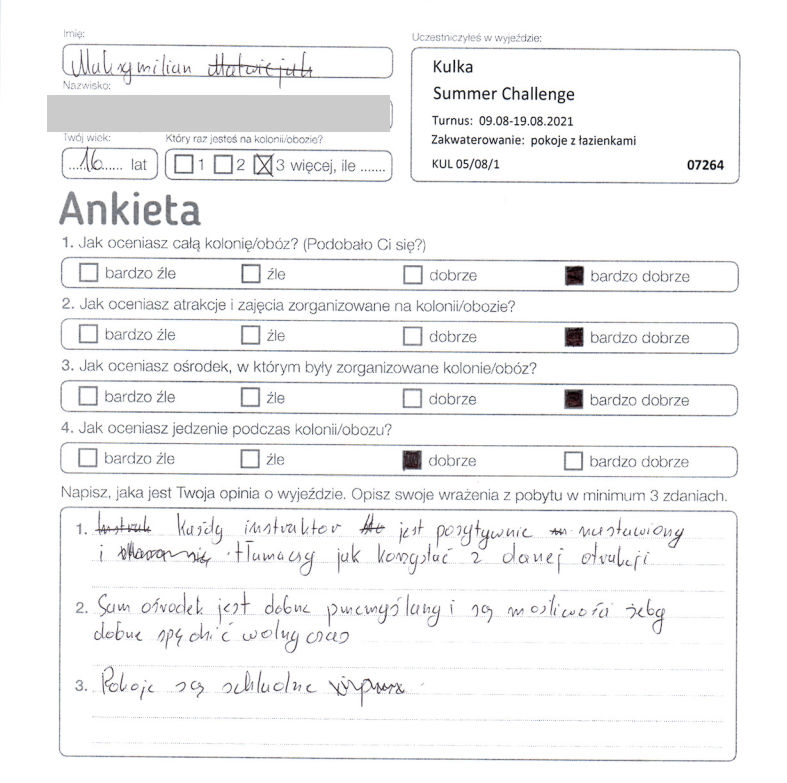 Imię:
Maksymilian
Nazwisko:
Twój wiek:
16 lat
Który raz jesteś na kolonii/obozie?
1 2 3 więcej, ile .......
Uczestniczyłeś w wyjeździe:
Kulka
Summer Challenge
Turnus: 09.08-19.08.2021
Zakwaterowanie: pokoje z łazienkami
KUL 05/08/1 07264
Ankieta
1. Jak oceniasz całą kolonię/obóz? (Podobało Ci się?)
bardzo źle źle dobrze bardzo dobrze
2. Jak oceniasz atrakcje i zajęcia zorganizowane na kolonii/obozie?
bardzo źle źle dobrze bardzo dobrze
3. Jak oceniasz ośrodek, w którym były zorganizowane kolonie/obóz?
bardzo źle źle dobrze bardzo dobrze
4. Jak oceniasz jedzenie podczas kolonii/obozu?
bardzo źle źle dobrze bardzo dobrze
Napisz, jaka jest Twoja opinia o wyjeździe. Opisz swoje wrażenia z pobytu w minimum 3 zdaniach.
1. Każdy instruktor jest pozytywnie nastawiony
i tłumaczy jak korzystać z danej atrakcji
2. Sam ośrodek jest dobrze przemyślany i są możliwości żeby
dobrze spędzić wolny czas
3. Pokoje są schludne